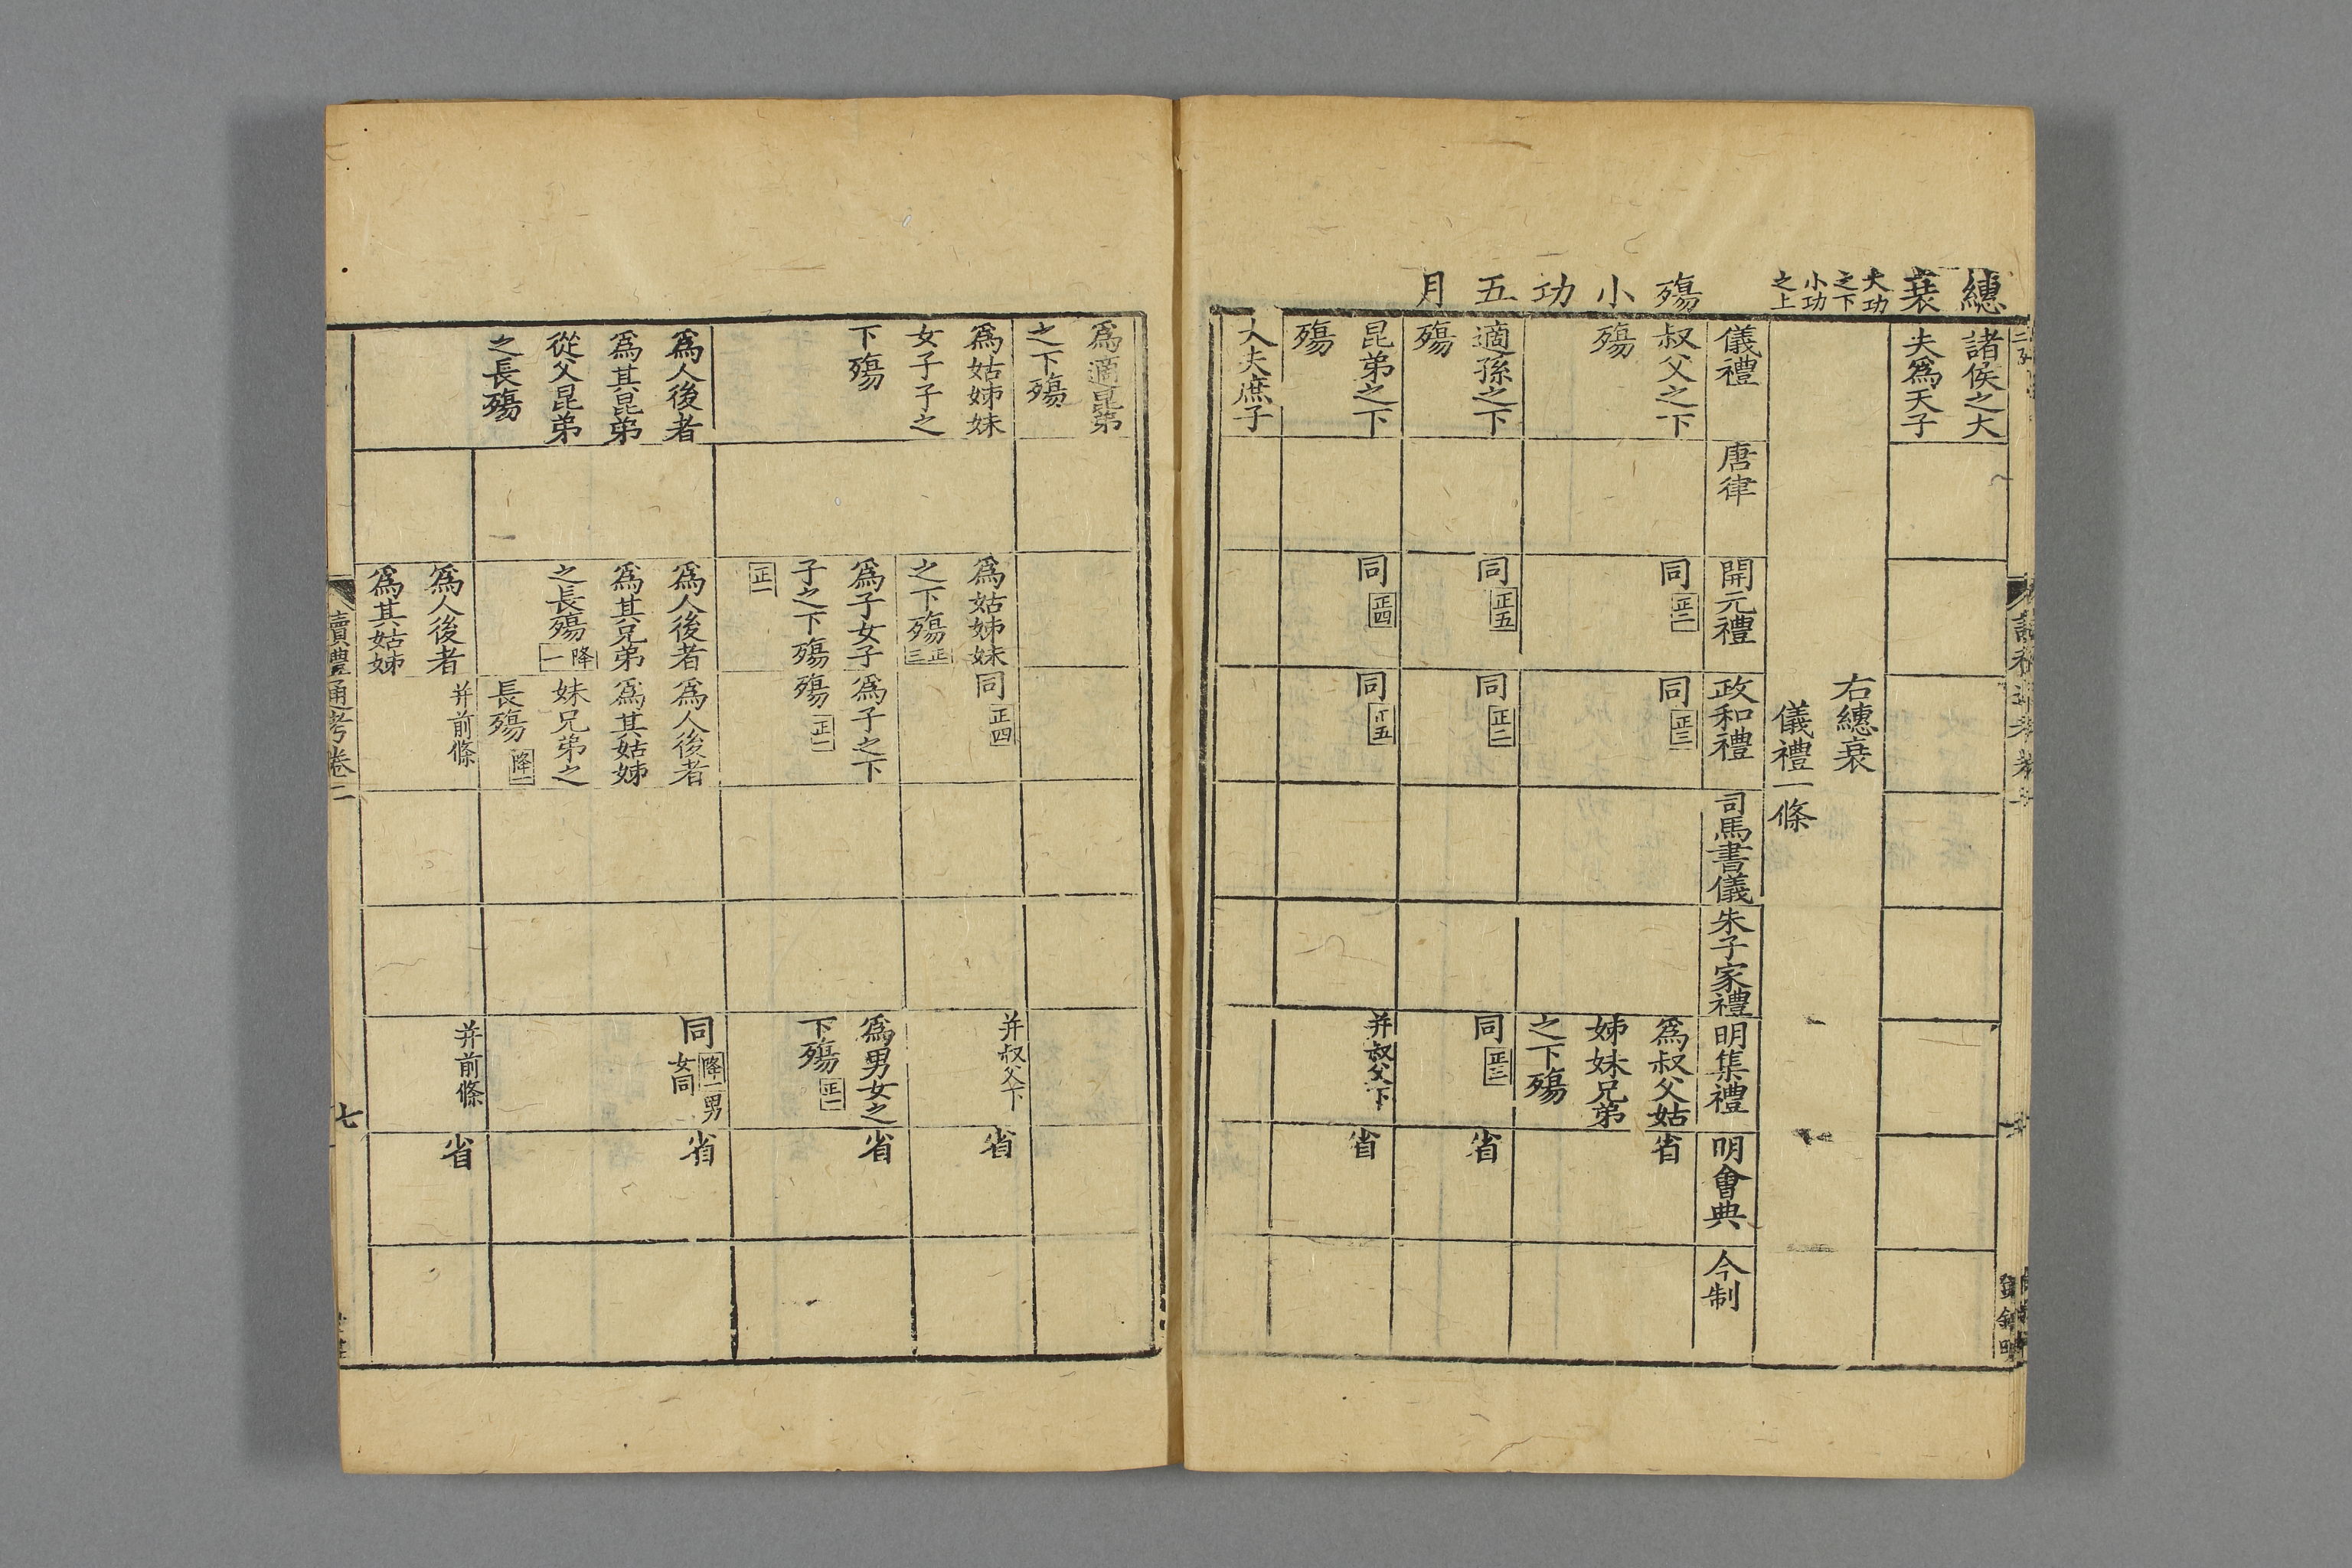 繐衰
大功
之下
小功
之上
殤小功五月
諸侯之大
夫爲天子
右繐衰
儀禮一條
儀禮
唐律
開元禮
政和禮
司馬書儀
朱子家禮
明集禮
明會典
今制
叔父之下
殤
同
正二
同
正三
爲叔父姑
姊妹兄弟
之下殤
省
適孫之下
殤
同
正五
同
正二
同
正二
省
昆弟之下
殤
同
正四
同
正五
并叔父下
省
大夫庶子
爲適昆弟
之下殤
爲姑姊妹
女子子之
下殤
爲姑姊妹
之下殤
正三
爲子女子
子之下殤
正一
同
正四
爲子之下
殤
正一
并叔父下
爲男女之
下殤
正一
省
省
爲人後者
爲其昆弟
從父昆弟
之長殤
爲人後者
爲其兄弟
之長殤
降一
爲人後者
爲其姑姊
妹兄弟之
長殤
降一
同
降一男
女同
省
爲人後者
爲其姑姊
并前條
并前條
省
讀禮通考卷二
七